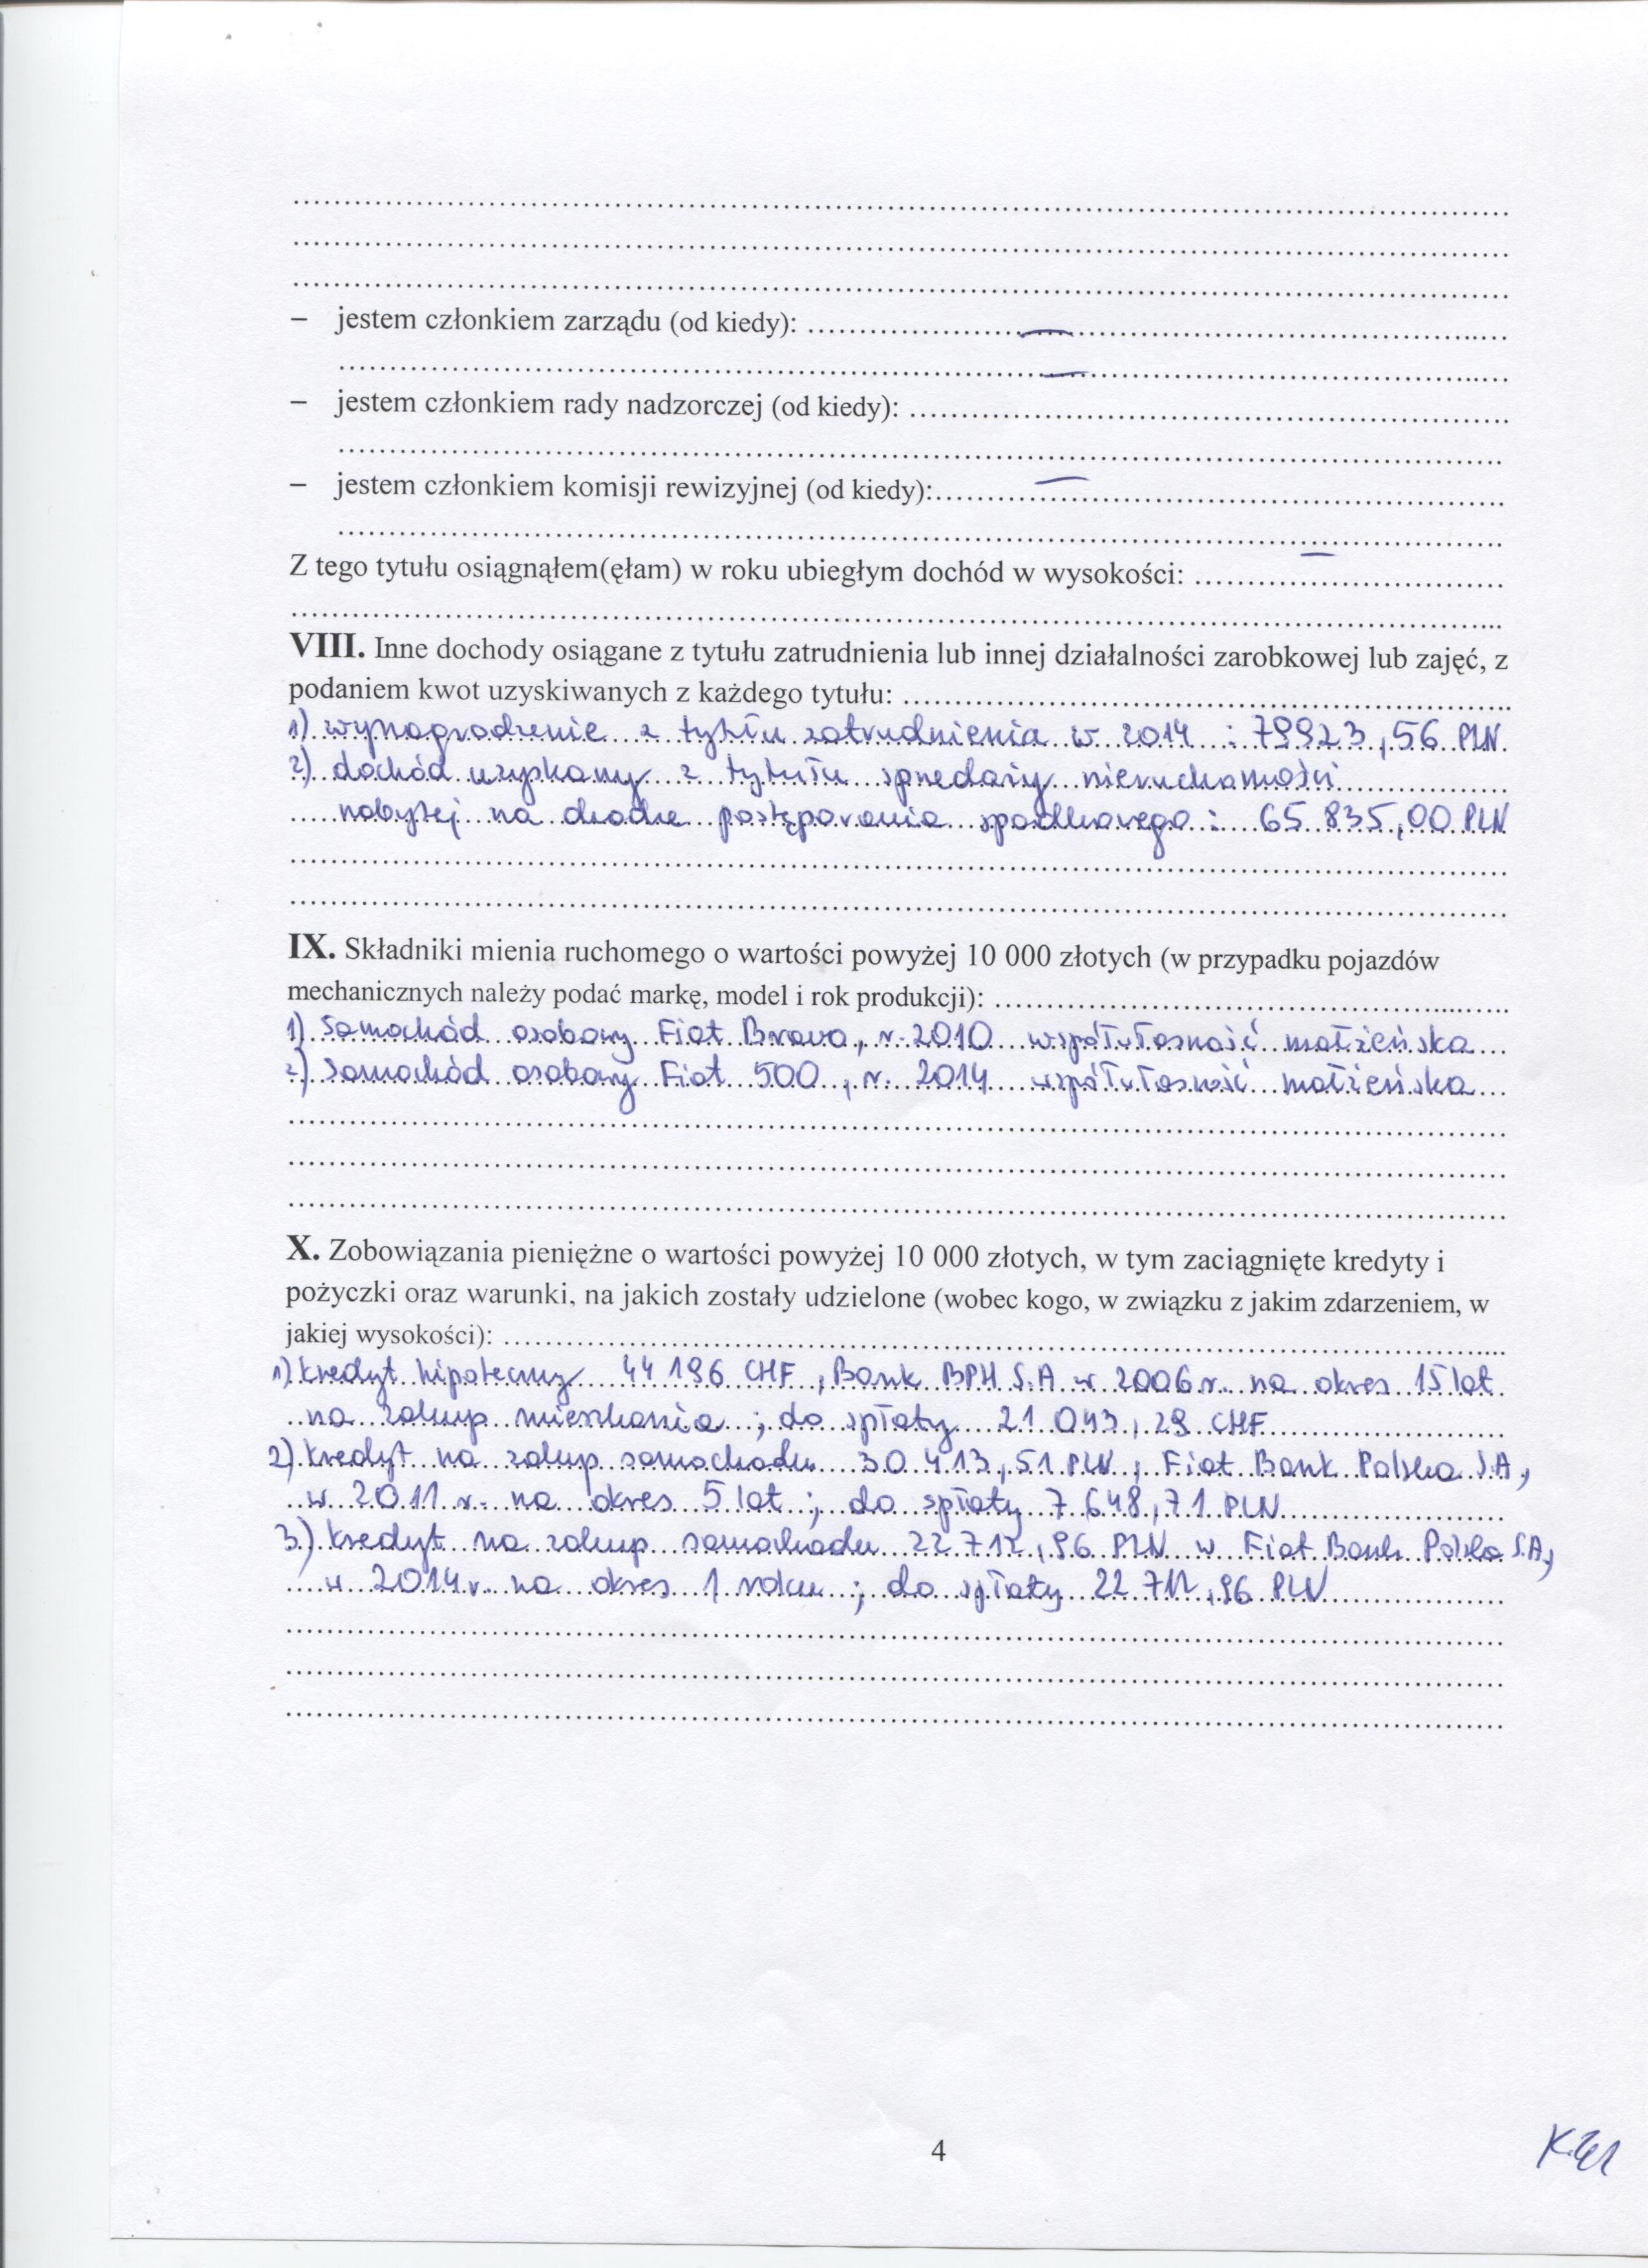 – jestem członkiem zarządu (od kiedy): —
—
– jestem członkiem rady nadzorczej (od kiedy):
– jestem członkiem komisji rewizyjnej (od kiedy): —
Z tego tytułu osiągnąłem(ęłam) w roku ubiegłym dochód w wysokości: —
VIII. Inne dochody osiągane z tytułu zatrudnienia lub innej działalności zarobkowej lub zajęć, z
podaniem kwot uzyskiwanych z każdego tytułu:
1) wynagrodzenie z tytułu zatrudnienia w 2014 : 79923,56 PLN
2) dochód uzyskany z tytułu sprzedaży nieruchomości
nabytej na drodze postępowania spadkowego : 65 835,00 PLN
IX. Składniki mienia ruchomego o wartości powyżej 10 000 złotych (w przypadku pojazdów
mechanicznych należy podać markę, model i rok produkcji):
1) Samochód osobowy Fiat Bravo, r. 2010 współwłasność małżeńska
2) Samochód osobowy Fiat 500, r. 2014 współwłasność małżeńska
X. Zobowiązania pieniężne o wartości powyżej 10 000 złotych, w tym zaciągnięte kredyty i
pożyczki oraz warunki, na jakich zostały udzielone (wobec kogo, w związku z jakim zdarzeniem, w
jakiej wysokości):
1) kredyt hipoteczny 44 196 CHF, Bank BPH S.A w 2006 r. na okres 15 lat
na zakup mieszkania ; do spłaty 21 043,29 CHF
2) kredyt na zakup samochodu 30 413,51 PLN, Fiat Bank Polska S.A,
w 2011 r. na okres 5 lat ; do spłaty 7 648,71 PLN
3) kredyt na zakup samochodu 22 712,96 PLN w Fiat Bank Polska S.A,
w 2014 r. na okres 1 roku ; do spłaty 22 712,96 PLN
4